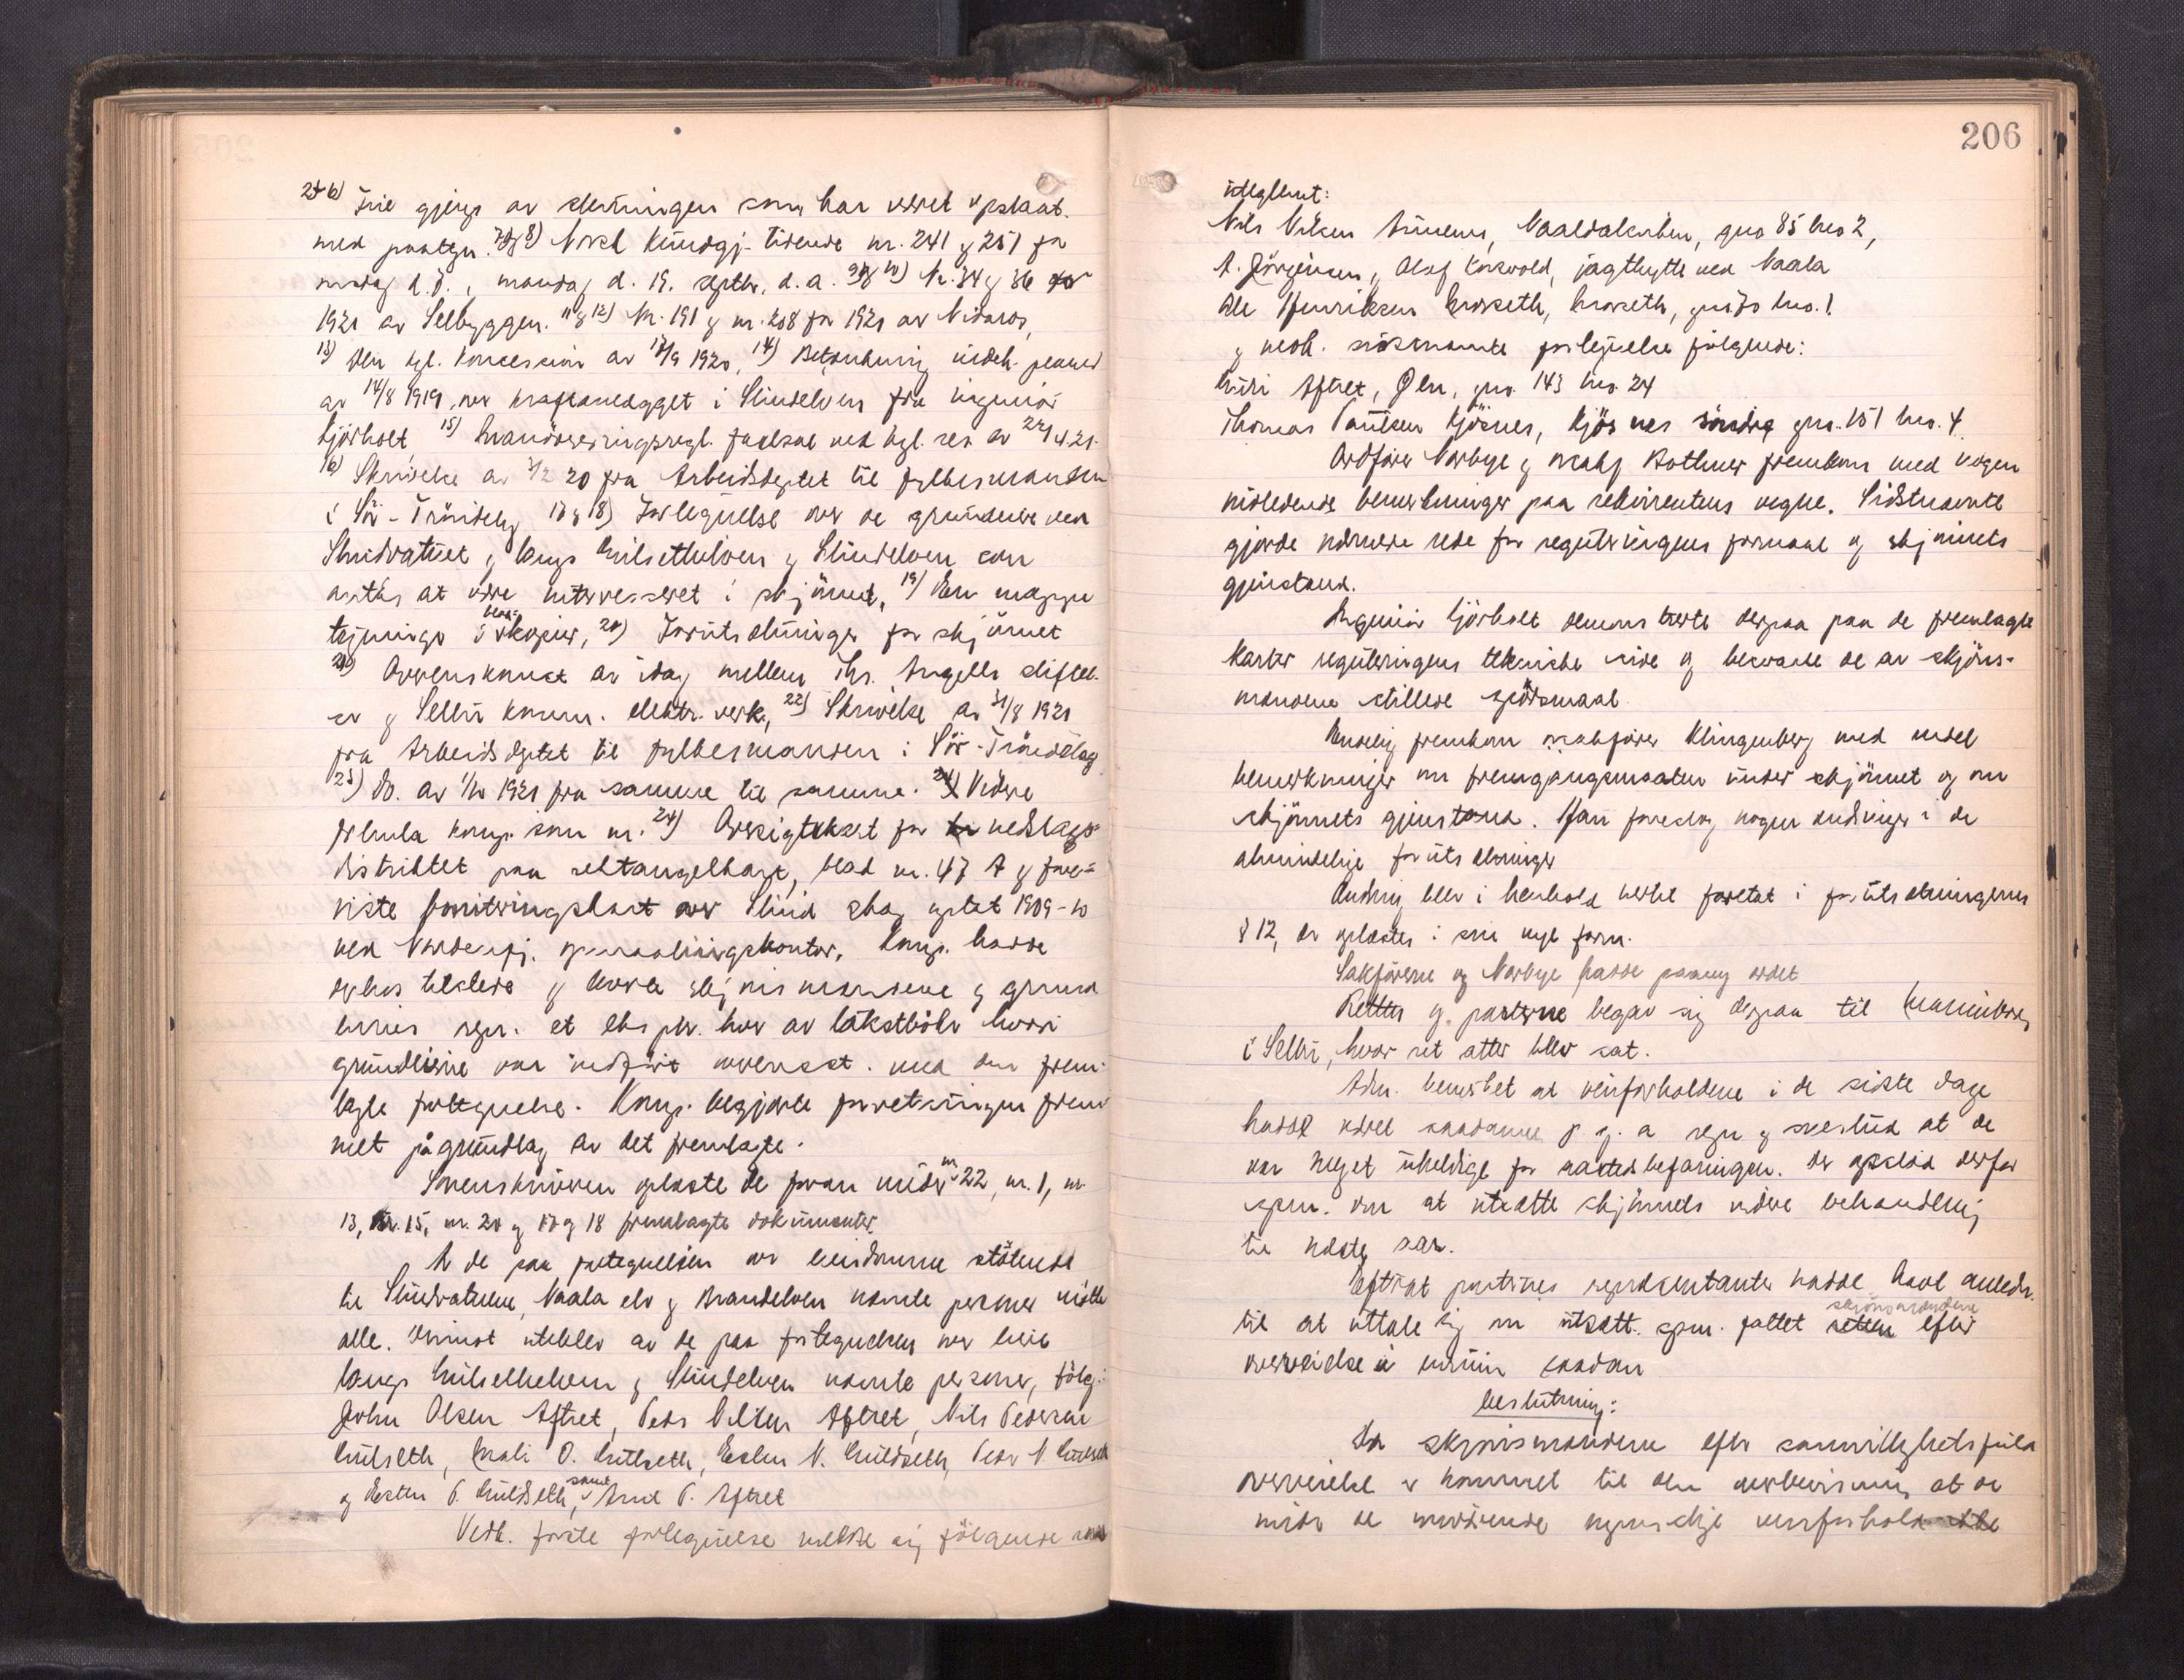 2–6) Trie gjenp. av stevningen som har været opslaat.
med paategn. 7 og 8) Norsk Kundgj-tidende nr. 241 og 251 for
onsdag d. 7., mandag d. 19. septbr. d.a. 9 og 10) Nr. 34 og 36 for
1921 av Selbyggen. 11 og 12) Nr. 191 og nr. 208 for 1921 av Nidaros,
13) Den kgl. koncession av 17/9 1920, 14) Betænkning vedk. planen
av 14/8 1919, over kraftanlægget i Slindelven fra ingeniör
Gjörholt, 15) Manövreringsregl. fastsat ved kgl. res. av 22/4.21.
16) Skrivelse av 3/2 20 fra Arbeidsdeptet til fylkesmanden
i Sör-Tröndelag 17 og 18) Fortegnelse over de grundeiere ved
Slindvatnet og langs Gulsethelven og Slindelven som
antas at være interesseret i skjönnet, 19) En mappe
tegninger i blaakopier, 20) Forutsetninger for skjönnet
21) Overenskomst av idag mellem Ths. Angells stiftel-
ser og Selbu komm. elektr. verk, 22) Skrivelse av 31/8 1921
fra Arbeidsdeptet til fylkesmanden i Sör-Tröndelag
23) Do. av 1/10 1921 fra samme til samme. 24) Videre
fremla komp. som nr. 24) Oversigtskart for nedslags-
distriktet paa rektangelkart, blad nr. 47 A og fore-
viste boniteringskart over Slind skog optat 1909-10
ved Nordenfj. opmaalingskontor. Komp. hadde
ophos tilstede og hver skjönsmændene og grund
eiernes repr. et ekspl. hver av takstböker hvori
grundeierne var indfört overensst. med den frem-
lagte fortegnelse. Komp. begjærte forretningen frem
met på grundlag av det fremlagte.
Sorenskriveren oplæste de foran under nr. 22, nr. 1, nr
13, nr. 15, nr. 20 og 17 og 18 fremlagte dokumenter.
Av de paa fortegnelsen over eiendomme stötende
til Slindvatnene, Naala elv og Brandelven nævnte personer mötte
alle. Derimot uteblev av de paa fortegnelsen over eiere
langs Gulsethelven og Slindelven nævnte personer, fölg.:
John Olsen Aftret, Peder Nilsen Aftret, Nils Pedersen
Gulseth, Mali O. Gulseth, Esten N. Guldseth, Peder N. Gulseth
og Esten P. Guldseth, samt Arnt P. Aftret
Vedk. förste fortegnelse meldte sig fölgende som
uteglemt:
Nils Nilsen Aunemo, Naaldalsrten, gno 85 bno 2,
A. Jörgensen, Olaf Korsvold, jagthytte ved Naala
Ole Henriksen Moseth, Moseth, gno bno. 1.
og vedk. sistnævnte fortegnelse fölgende:
Guri Aftret, Ölen, gno. 143 bno. 24
Thomas Paulsen Kjösnes, Kjösnes söndre gno. 151 bno. 4.
Ordförer Norbye og sakf. Bothner fremkom med nogen
indledende bemerkninger paa rekvirentens vegne. Sistnævnte
gjorde nærmere rede for reguleringens formaal og skjönnets
gjenstand.
Ingeniör Gjörholt demonstrerte derpaa paa de fremlagte
karter reguleringens tekniske side og besvarte de av skjöns-
mændene stillede spörsmaal.
Endelig fremkom sakförer Klingenberg med endel
bemerkninger om fremgangsmaaten under skjönnet og om
skjönnets gjenstand. Han foreslog nogen endringer i de
almindelige forutsetninger
Endring blev i henhold hertil foretat i forutsetningernes
§ 12, der oplæstes i sin nye form.
Sakförerne og Norbye hadde paany ordet
Retten og parterne begav sig derpaa til Mariinborg
i Selbu, hvor ret atter blev sat.
Adm. bemerket at veirforholdene i de siste dage
hadde været saadanne p.g.a. regn og sneslud at de
var meget uheldige for aastedsbefaringen. Der opstod derfor
spm. om at utsætte skjönnets videre behandling
til næste aar.
Efterat parternes repræsentanter hadde havt anledn.
til at uttale sig om utsætt. spm. fattet skjönsmændene efter
overveielse i enrum saadan
beslutning:
Da skjönsmændene efter samvittighetsfuld
overveielse er kommet til den overbevisning at de
under de nuværende ugunstige veirforhold ikke